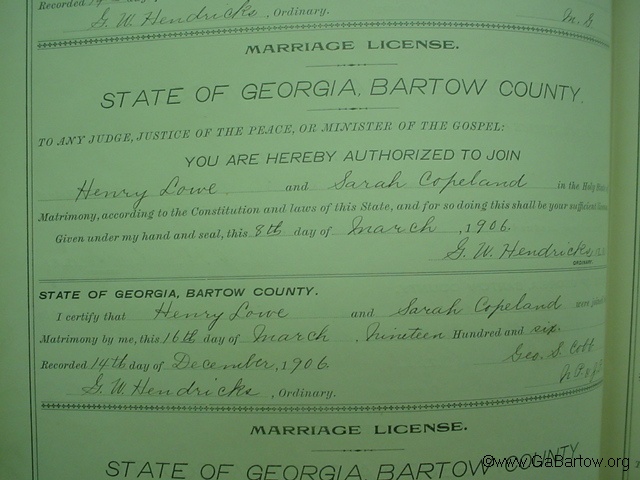 Recorded
G. W. Hendricks, Ordinary.
MARRIAGE LICENSE.
STATE OF GEORGIA, BARTOW COUNTY.
TO ANY JUDGE, JUSTICE OF THE PEACE, OR MINISTER OF THE GOSPEL:
YOU ARE HEREBY AUTHORIZED TO JOIN
Henry Lowe and Sarah Copeland in the Holy
Matrimony, according to the Constitution and laws of this State, and for so doing this shall be your sufficient
Given under my hand and seal, this 8th day of March, 1906.
G. W. Hendricks
ORDINARY.
STATE OF GEORGIA, BARTOW COUNTY.
I certify that Henry Lowe and Sarah Copeland were
Matrimony by me, this 16th day of March, Nineteen Hundred and six.
Geo. S. Cobb
Recorded 14th day of December, 1906.
G. W. Hendricks, Ordinary.
MARRIAGE LICENSE.
STATE OF GEORGIA, BARTOW COUNTY
©www.GaBartow.org